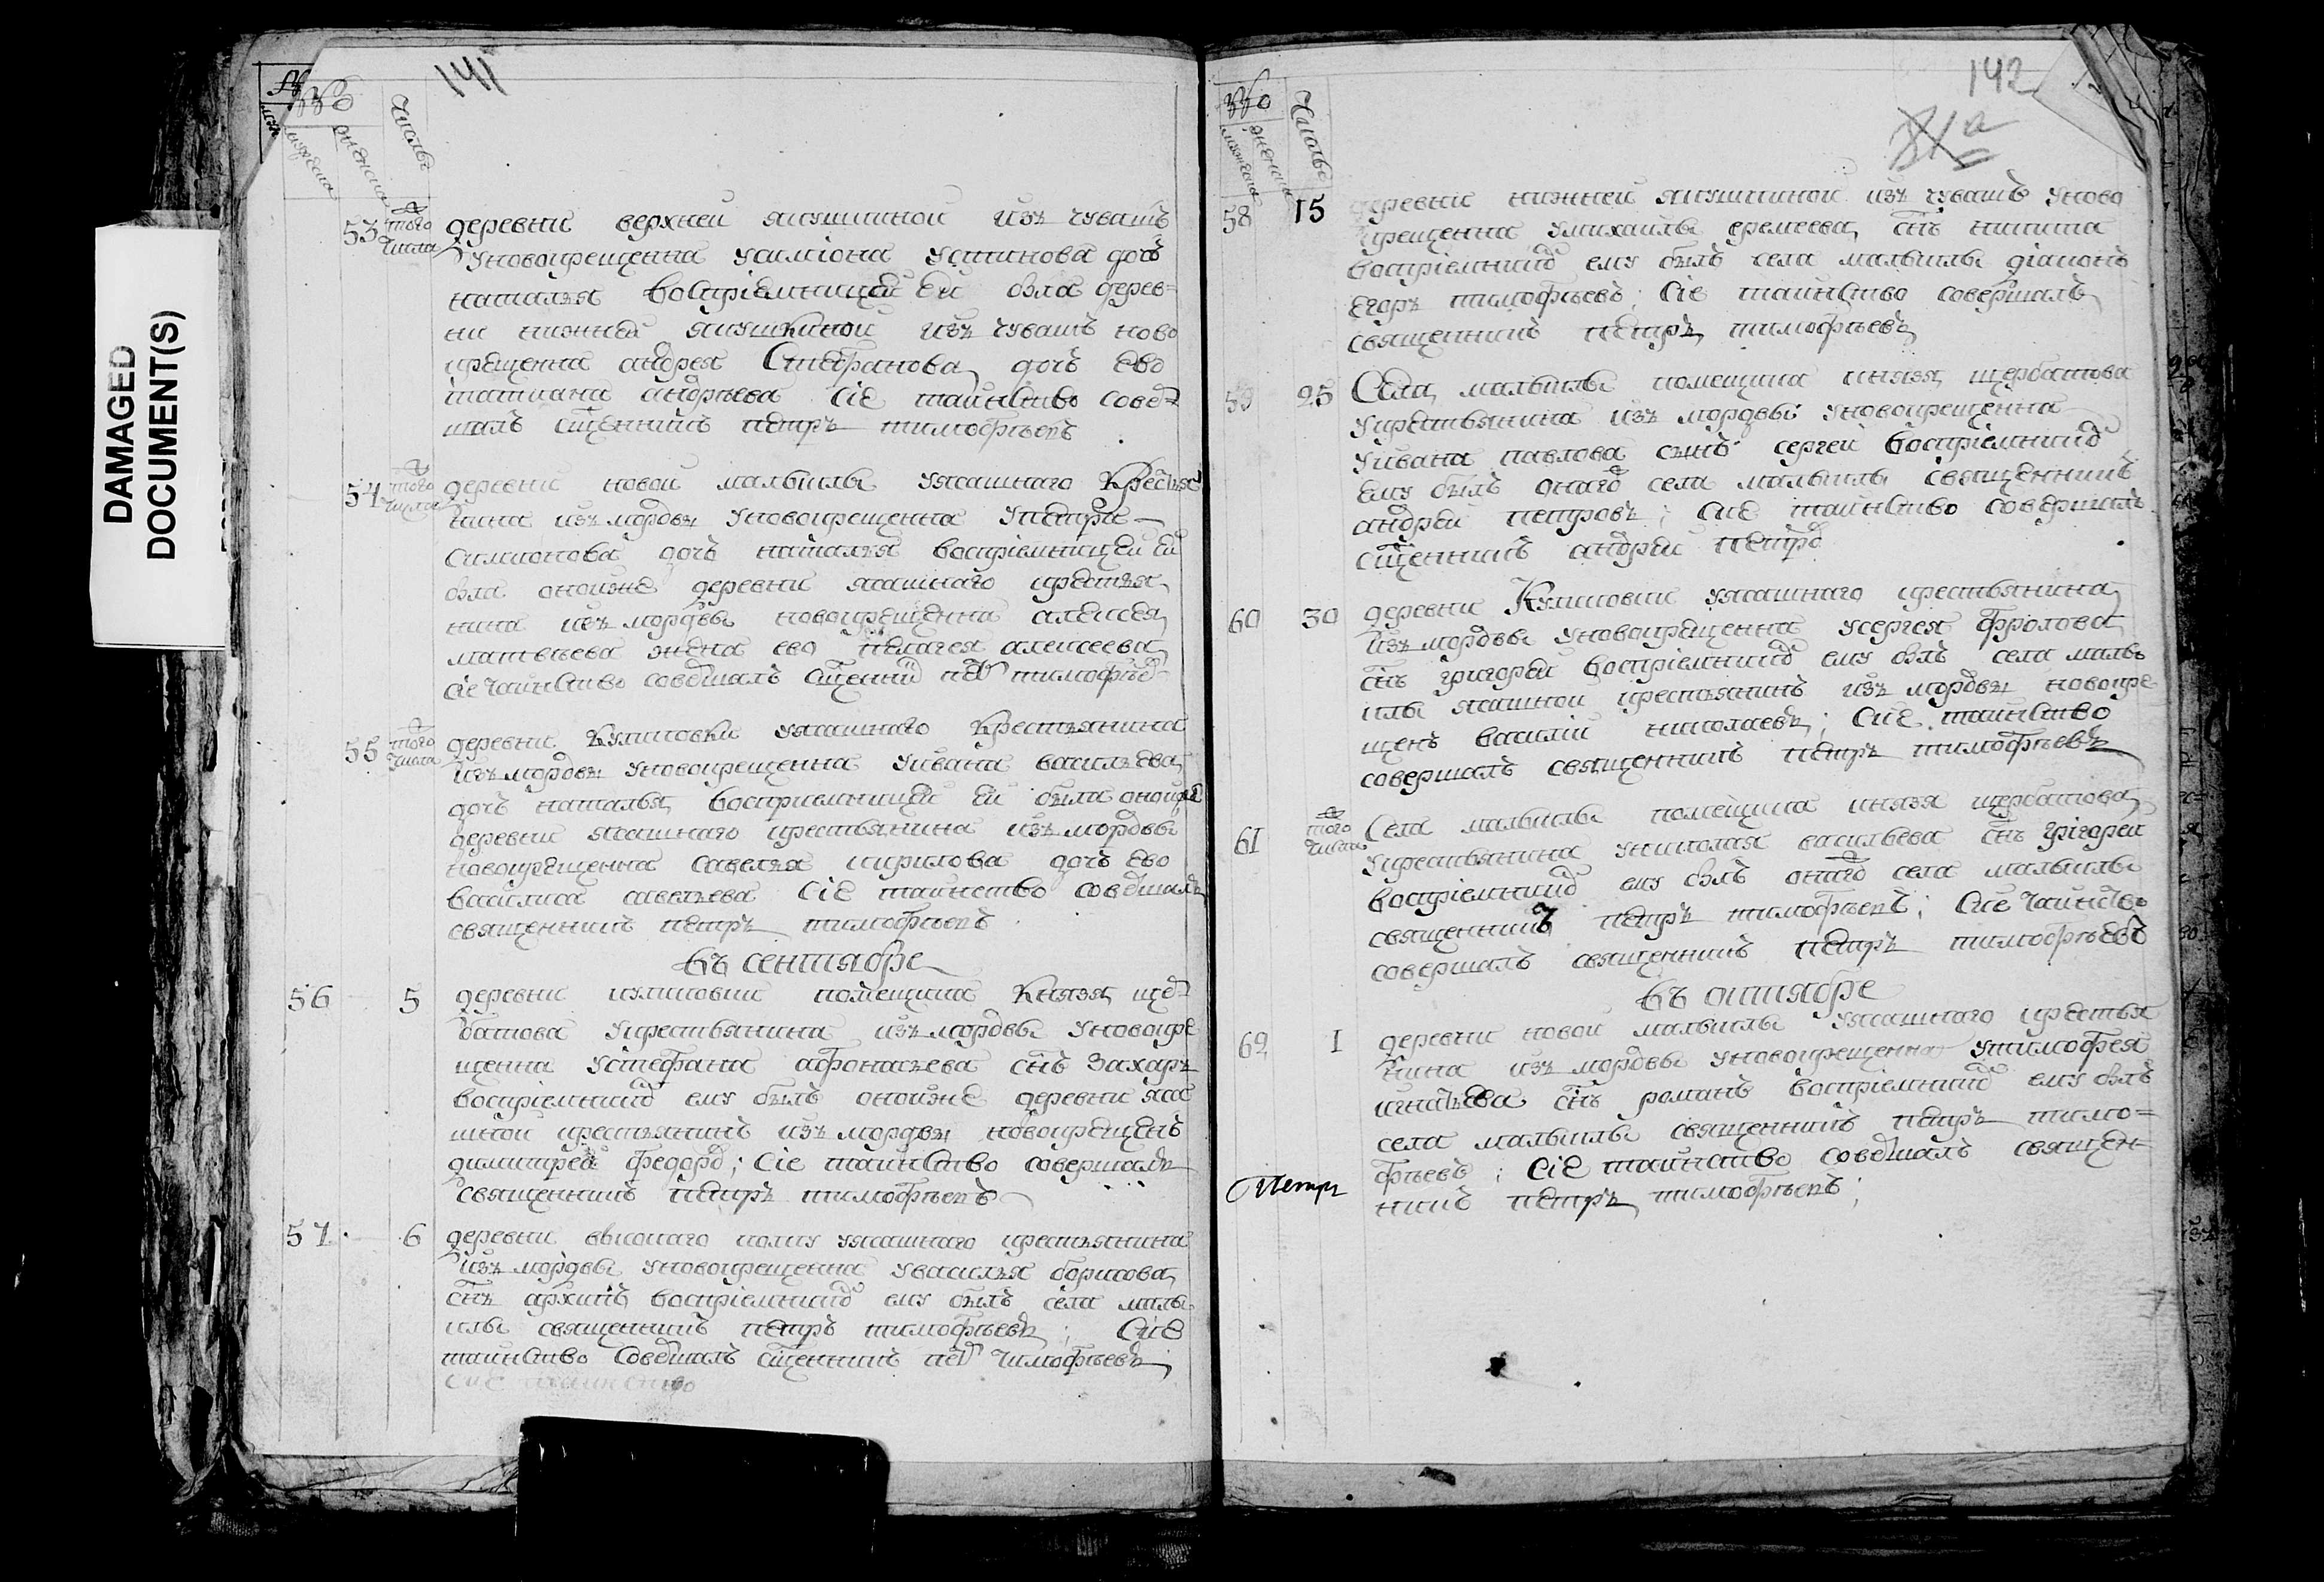 DAMAGED
DOCUMENT(S)
141
число
53 того числа деревни верхней якушкиной изъ чувашъ
уновокрещенна усимiона устинова дочь
наталья воспрiемницей ей была дерев-
ни нижней якушкиной изъ чувашъ ново
крещенна андрея Стефанова дочь ево
татиана андрѣева сiе таинство совер
шалъ сщенникъ петръ тимофѣевъ
54 того числа деревни новой малыклы уясашнаго крестья
нина изъ мордвы уновокрещенна упетра
симионова дочь наталья воспрiемницей ей
была оной же деревни ясашнаго крестья
нина изъ мордвы новокрещенна алексея
матвѣева жена ево пелагея алексеева
сiе таинство совершалъ сщенникъ петръ тимофѣев
55 того числа деревни Куликовки уясашнаго крестьянина
изъ мордвы уновокрещенна уивана васильева
дочь наталья воспрiемницей ей была оной же
деревни ясашнаго крестьянина изъ мордвы
новокрещенна савелья кирилова дочь ево
василиса савельева сiе таинство совершалъ
священникъ петръ тимофѣевъ
въ сентябре
56 5 деревни куликовки помещика Князя щер
батова укрестьянина изъ мордвы уновокре
щенна устефана афонасьева снъ захаръ
воспрiемникъ ему былъ оной же деревни яса
шной крестьянинъ изъ мордвы новокрещенъ
димитрей федоровъ; сiе таинство совершалъ
священникъ петръ тимофѣевъ
57 6 деревни высокаго колку уясашнаго крестьянина
изъ мордвы уновокрещенна увасилья борисова
снъ архипъ воспрiемникъ ему былъ села малы
клы священникъ петръ тимофѣевъ; Сие
таинство совершалъ сщенникъ петръ тимофѣевъ
сие таинство
142
число
58 15 деревни нижней якушкиной изъ чувашъ уново
крещенна умихаилы еремеева снъ никита
воспрiемникъ ему былъ села малыклы дiаконъ
Егоръ тимофѣевъ; сiе таинство совершалъ
священникъ петръ тимофѣевъ
59 25 Села малыклы помещика князя щербатова
укрестьянина изъ мордвы уновокрещенна
уивана павлова сынъ сергей воспрiемникъ
ему былъ онаго села малыклы священникъ
андрей петровъ; сие таинство совершалъ
сщенникъ андрей петровъ
60 30 деревни Куликовки уясашнаго крестьянина
изъ мордвы уновокрещенна усергея фролова
снъ григорей воспрiемникъ ему былъ села малы
клы ясашной крестьянинъ изъ мордвы новокре
щенъ василiй николаевъ; Сие таинство
совершалъ священникъ петръ тимофѣевъ
61 того числа Села малыклы помещика князя щербатова
укрестьянина униколая васильева снъ григорей
воспрiемникъ ему былъ онаго села малыклы
священникъ петръ тимофѣевъ; Сие таинство
совершалъ священникъ петръ тимофѣевъ
въ октябре
62 1 деревни новой малыклы уясашнаго крестья
нина изъ мордвы уновокрещенна утимофея
игнатьева снъ романъ воспрiемникъ ему былъ
села малыклы священникъ петръ тимо=
фѣевъ; сiе таинство совершалъ священ-
никъ петръ тимофѣевъ;
Петръ